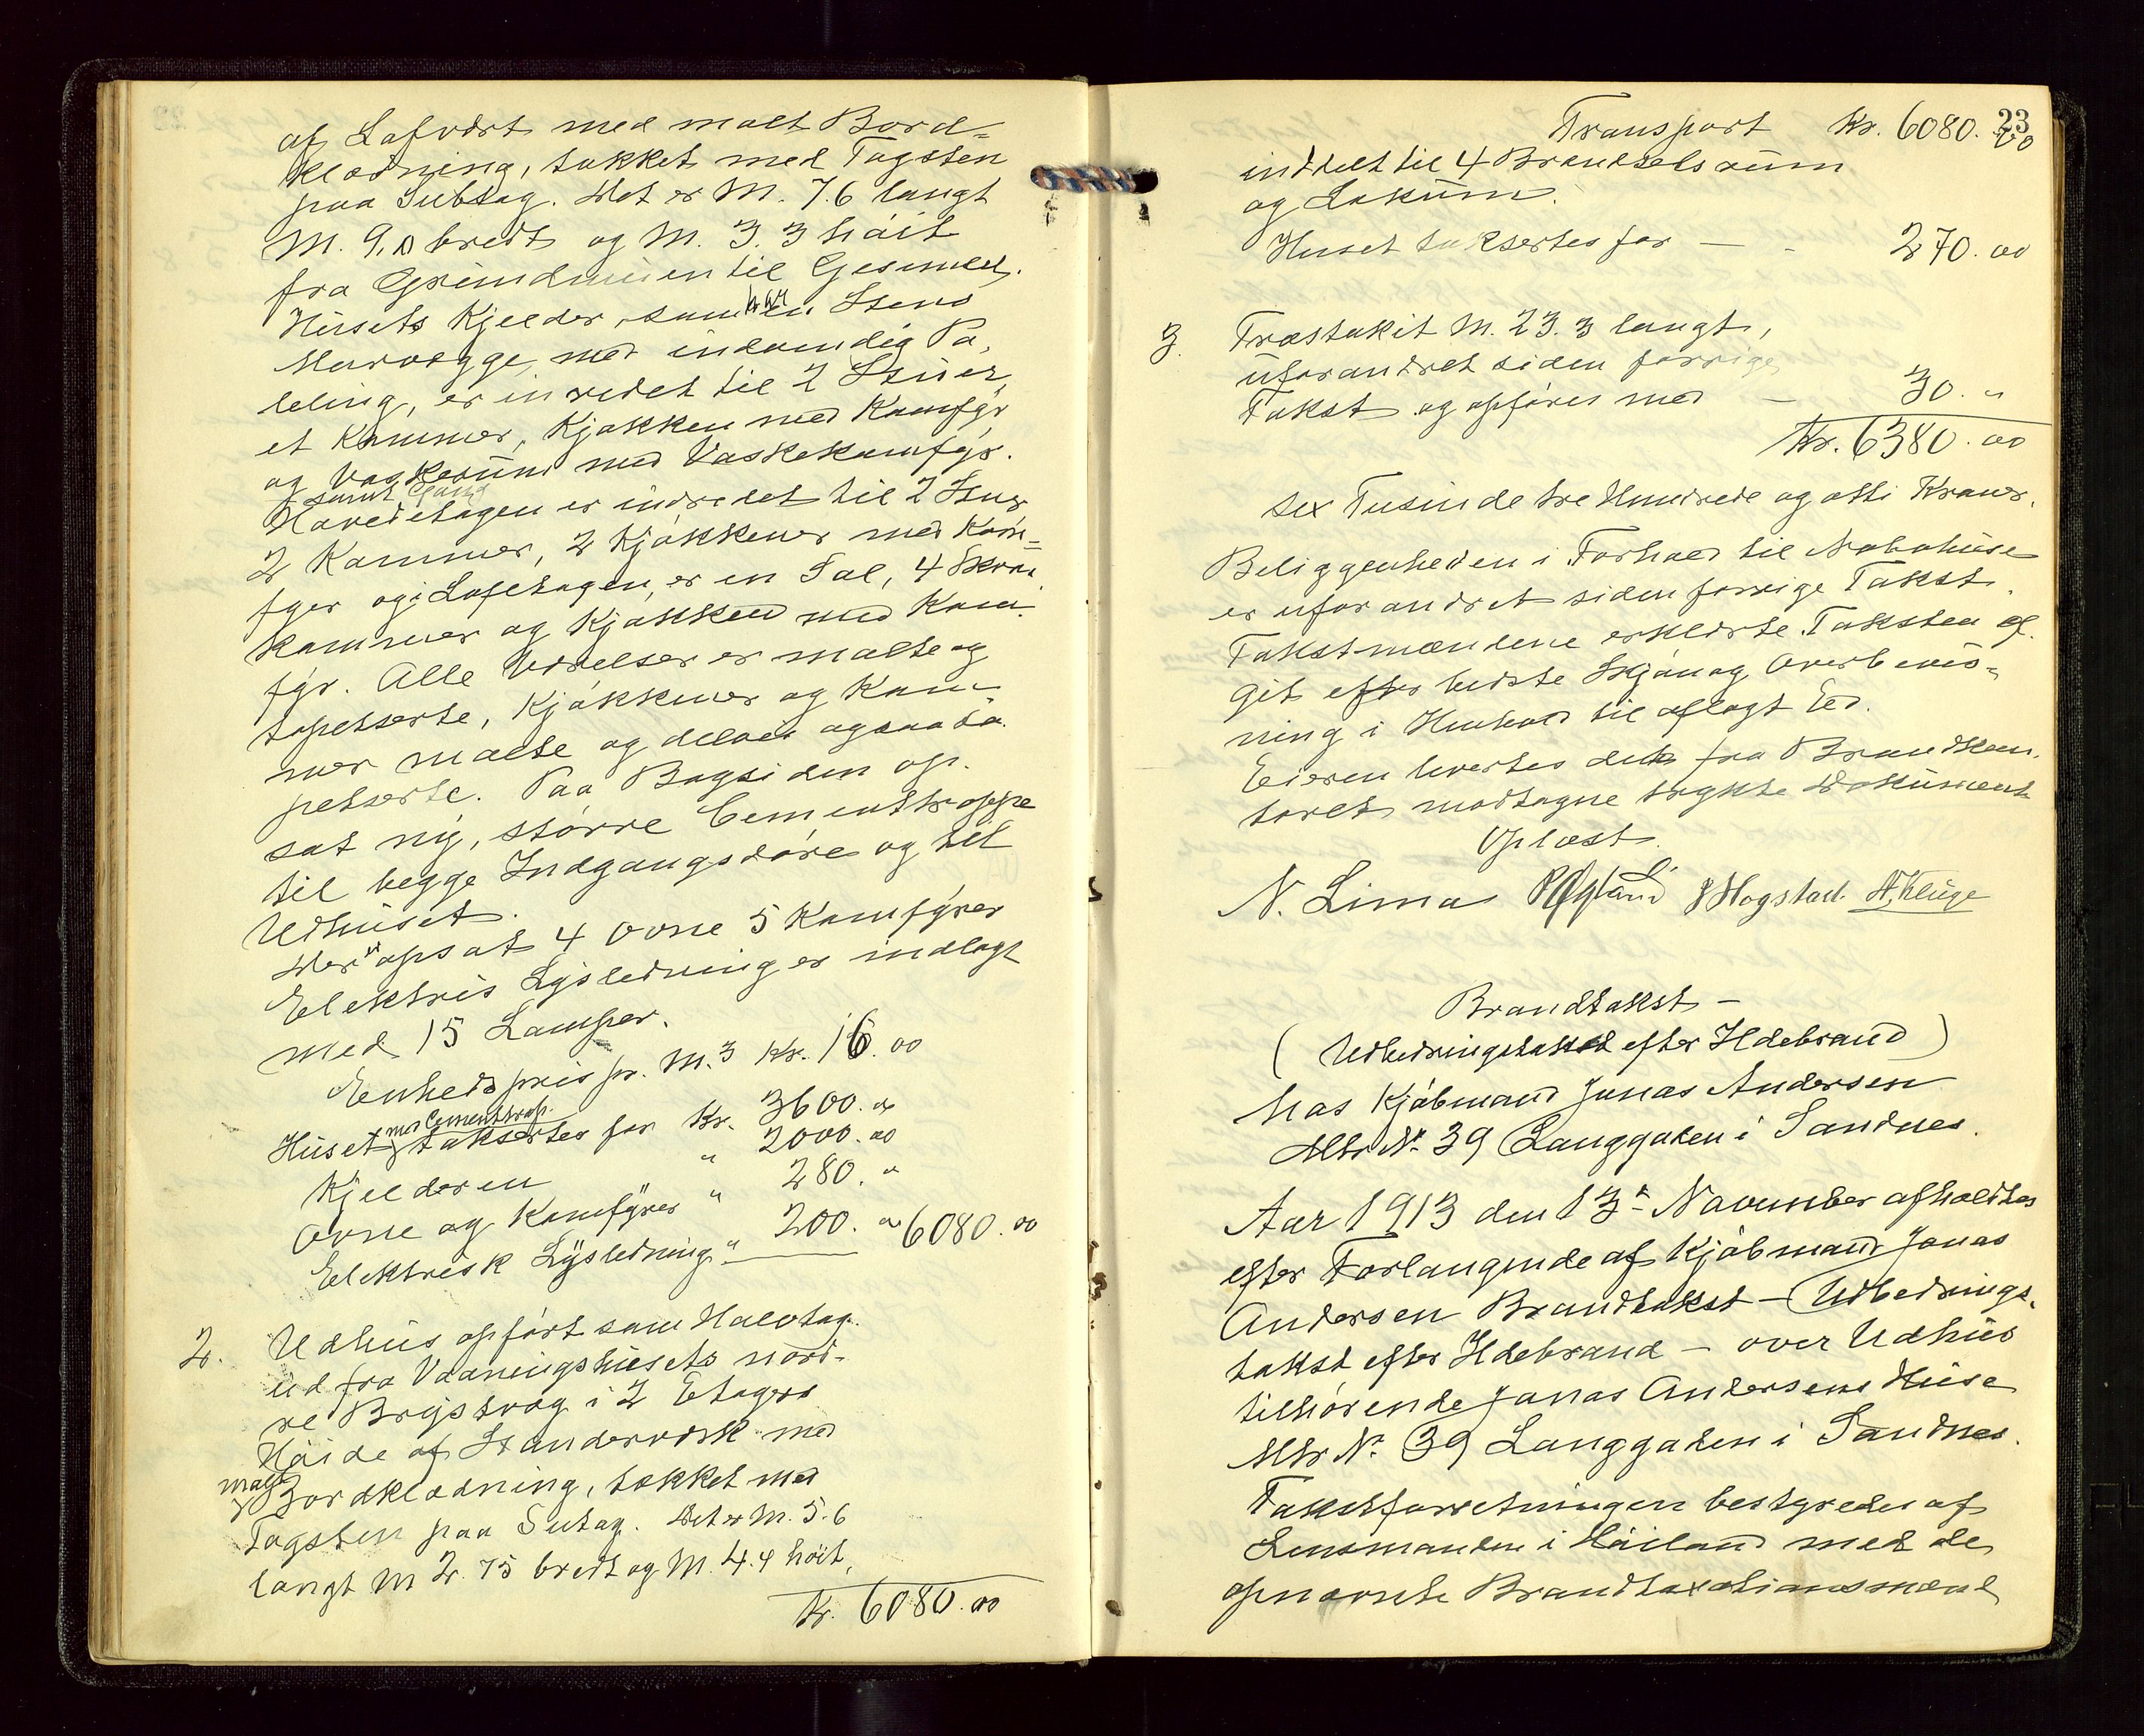 af Lafværk med malt Bord=
klædning, tækket med Tagsten
paa Subtag. Det er M. 7.6 langt
M. 9,0 bredt og M. 3.3 høit
fra Grundmuren til Gesimsen.
Husets Kjelder, som har en Stens
Murvægge, med indvendig Pa,
leling, er inredet til 2 Stuer,
et Kammer, Kjøkken med Komfyr
og Vaskerum med Vaskekomfyr.
samt Gang
Hovedetagen er indredet til 2 Stuer
2 Kammer, 2 Kjøkkener med Kom=
fyer og i Loftetagen, er en Sal, 4 Skraa
kammer og Kjøkken med Kom
fyr. Alle Værelser er malte og
tapetserte, Kjøkkener og Kam-
mer malte og delvis ogsaa ta
petserte. Paa Bagsiden op.
sat ny, større Cementtrappe
til begge Indgangsdøre og til
Udhuset.
Der er opsat 4 Ovne 5 Komfyrer
Elektris Lysledning er indlagt
med 15 Lamper.
Enhedspris pr. M.3 Kr. 16.00
Huset med Cementtrap. takseres for Kr. 3600.00
Kjelderen " 2000.00
Ovne og Komfyrer " 280. "
Elektrisk Lysledning " 200. 00 6080.00
2. Udhus opført som Halvtag
ud fra Vaaningshusets nord-
re Brystvæg i 2 Etagers
Høide af Standerværk med
malt Bordklædning, tækket med
Tagsten paa Sutag. Det er M. 5.6
langt M 2.75 bredt og M. 4.4 høit,
Kr. 6080.00
23
Transport Kr. 6080.00
inddelt til 4 Brændselsrum
og Lokum.
Huset taksertes for — - 270.00
3. Træstakit M. 23.3 langt,
uforandret siden forrige
Takst og opføres med — 30. "
Kr. 6380.00
sex Tusinde tre Hundrede og otti Kroner.
Beliggenheden i Forhold til Nabohuse
er uforandret siden forrige Takst.
Takstmændene erklærte Taksten af
git efter bedste Skjøn og Overbevis=
ning i Henhold til aflagt Ed.
Eieren levertes det fra Brandkon,
toret modtagne trykte Dokument
Oplæst.
N. Lima R Øgland J Hogstad. N. Kluge
Brandtakst —
( Udbedringstakst efter Ildebrand )
hos Kjøbmand Jonas Andersen
Mtr. Nr. 39 Langgaten i Sandnes.
Aar 1913 den 13de November afholdtes
efter Forlangende af Kjøbmand Jonas
Andersen Brandtakst — Udbedrings,
takst efter Ildebrand — over Udhus
tilhørende Jonas Andersens Huse
Mtr Nr. 39 Langgaten i Sandnes.
Takstforretningen bestyredes af
Lensmanden i Høiland med de
opnævnte Brandtaxationsmænd